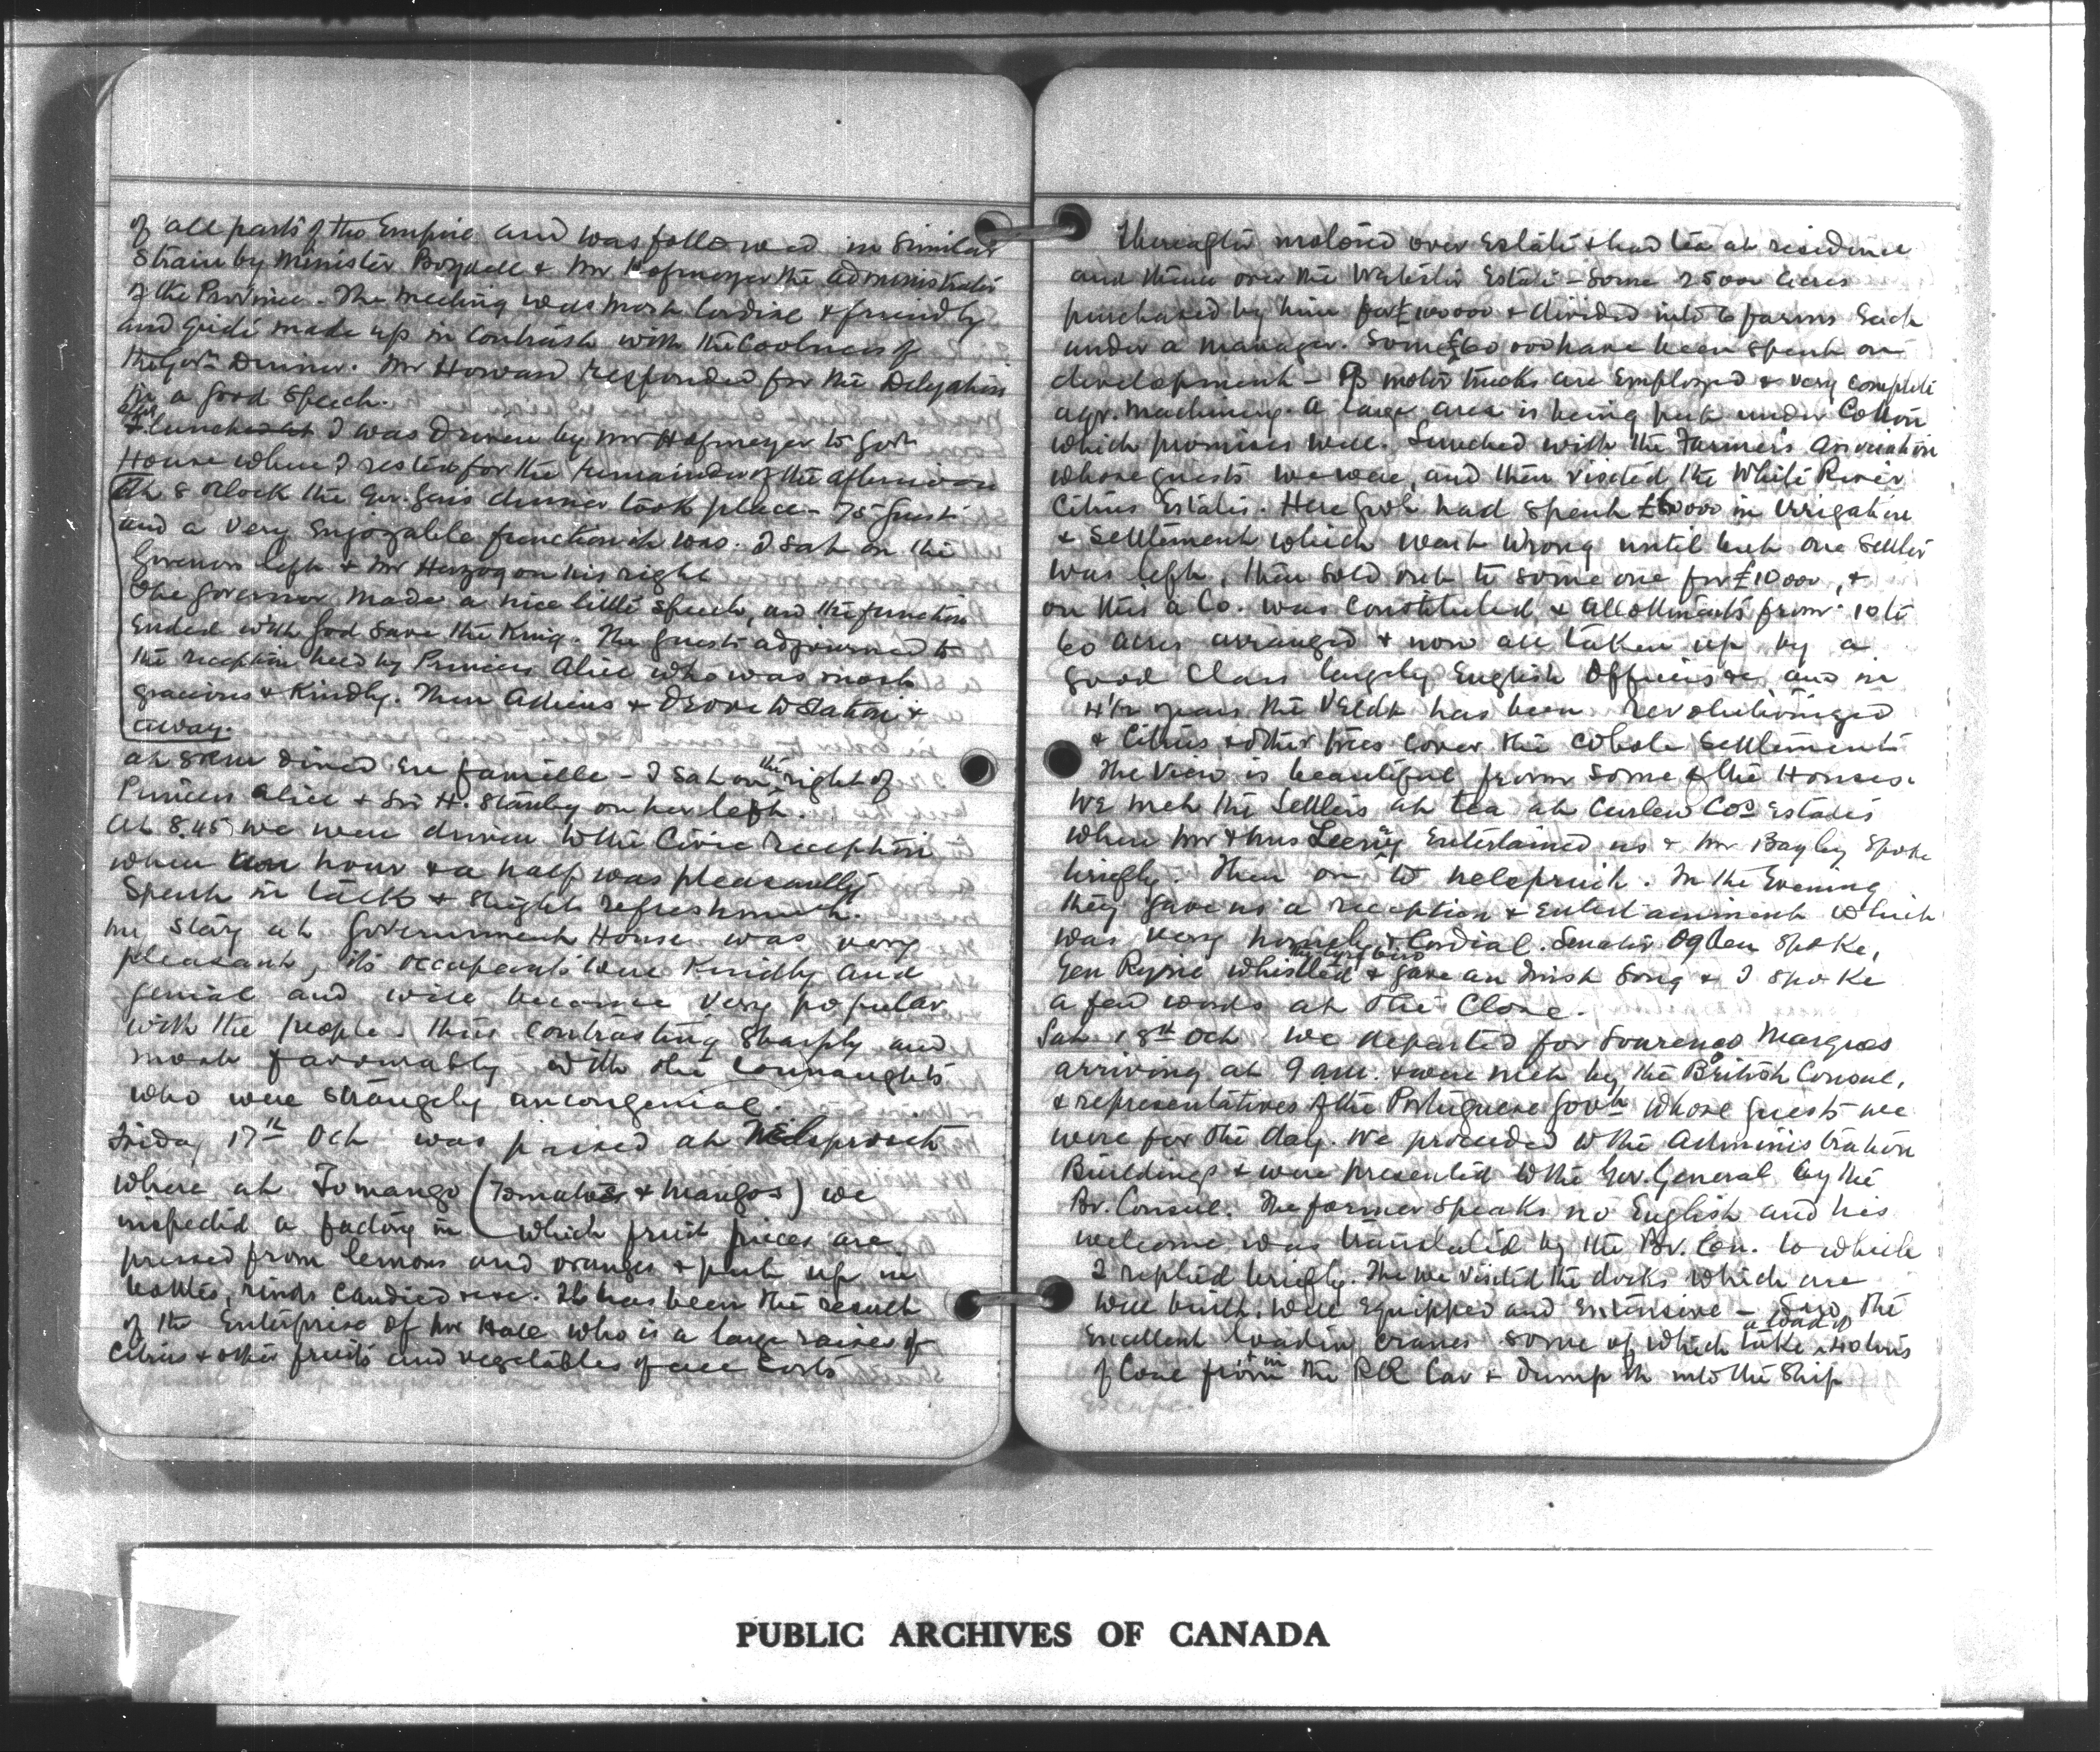 of all parts of the Empire and was followed in similar
strain by Minister Boydell & Mr Hofmeyer the administrator
of the Province. The meeting was most cordial & friendly
and quite made up in contrast with the coolness of
the Govt Dinner. Mr Howard responded for the Delegation
in a good speech.
after lunch I was driven by Mr Hofmeyer to Govt
House where I rested for the remainder of the afternoon
At 8 oclock the Gov. Gens dinner took place - 75 guests
and a very enjoyable function it was. I sat on the
Governors left & Mr Herzog on his right
The Governor made a nice little speech, and the function
ended with God Save the King. The guests adjourned to
the reception held by Princess Alice who was most
gracious & kindly. Then adieus & drove to station &
away.
at 8 P.M dined en famille - I sat on the right of
Princess Alice & Sir H. Stanley on her left.
At 8.45 we were driven to the Civic reception
when an hour & a half was pleasantly
spent in talk & slight refreshment.
My stay at Government House was very
pleasant, its occupants were kindly and
genial and will become very popular
with the people. thus contrasting sharply and
most favourably with the Connaughts
who were strangely uncongenial.
Friday 17th Oct was passed at Nelspruit
where at Tomango (Tomatoes & Mangos) we
inspected a factory in which fruit juices are
pressed from lemons and oranges & put up in
bottles, rinds candied &c. It has been the result
of the enterprise of Mr Hall who is a large raiser of
Citrus & other fruits and vegetables of all sorts
Thereafter motored over Estate & had tea at residence
and thence over the Webster Estate - some 25000 acres
purchased by him for £100000 & divided into 6 farms each
under a manager. Some £60 000 have been spent on
development - motor trucks are employed & very complete
agr. machinery. A large area is being put under Cotton
which promises well. Lunched with the Farmer's Association
whose guests we were, and then visited the White River
Citrus Estates. Here Govt had spent in irrigation
& Settlement which went wrong until but one settler
was left, then sold out to some one for £10000, &
on this a Co. was constituted & allotments from 10 to
60 acres arranged & now all taken up by a
good class largely English Officers &c and in
4 1/2 years the Veldt has been revolutionized
& Citrus & other trees cover the whole settlement
The view is beautiful from some of the Houses.
We met the settlers at tea at Curlew Cos Estates
where Mr & Mrs entertained us & Mr Bagley spoke
briefly. Then on to Nelspruit. In the Evening
they gave us a reception & entertainment which
was very homely & Cordial. Senator Ogden spoke,
Gen Ryrie whistled & gave an Irish song & I spoke
a few words at the close.
Sat 18th Oct we departed for Lourenco Marques
arriving at 9 am. & were met by the British Consul,
& representatives of the Portuguese Govt whose guests we
were for the day. We proceeded to the Administration
Buildings & were presented to the Gov. General by the
Br. Consul. The former speaks no English and his
welcome was translated by the Br. Con. to which
I replied briefly. The we visited the docks which are
well built, well equipped and extensive - Also the
excellent loadin cranes some of which take a load of 40 tons
of Coal from the RR Car & dump it into the ship
PUBLIC ARCHIVES OF CANADA